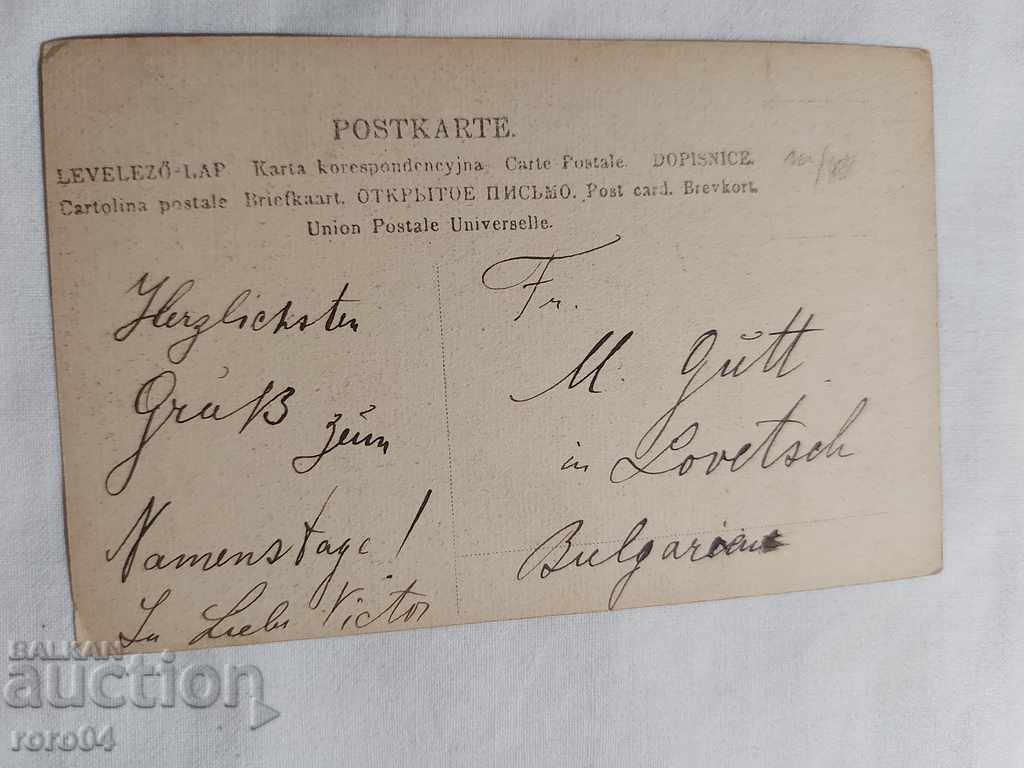 POSTKARTE.
LEVELEZŐ-LAP Karta korespondencyjna Carte Postale. DOPISNICE.
Cartolina postale Briefkaart. ОТКРЫТОЕ ПИСЬМО. Post card. Brevkort.
Union Postale Universelle.
Herzlichsten
Gruß zum
Namenstage!
In Liebe Victor
Fr.
M. Gutt
in Lovetsch
Bulgarien
BALKAN
auction
roro04